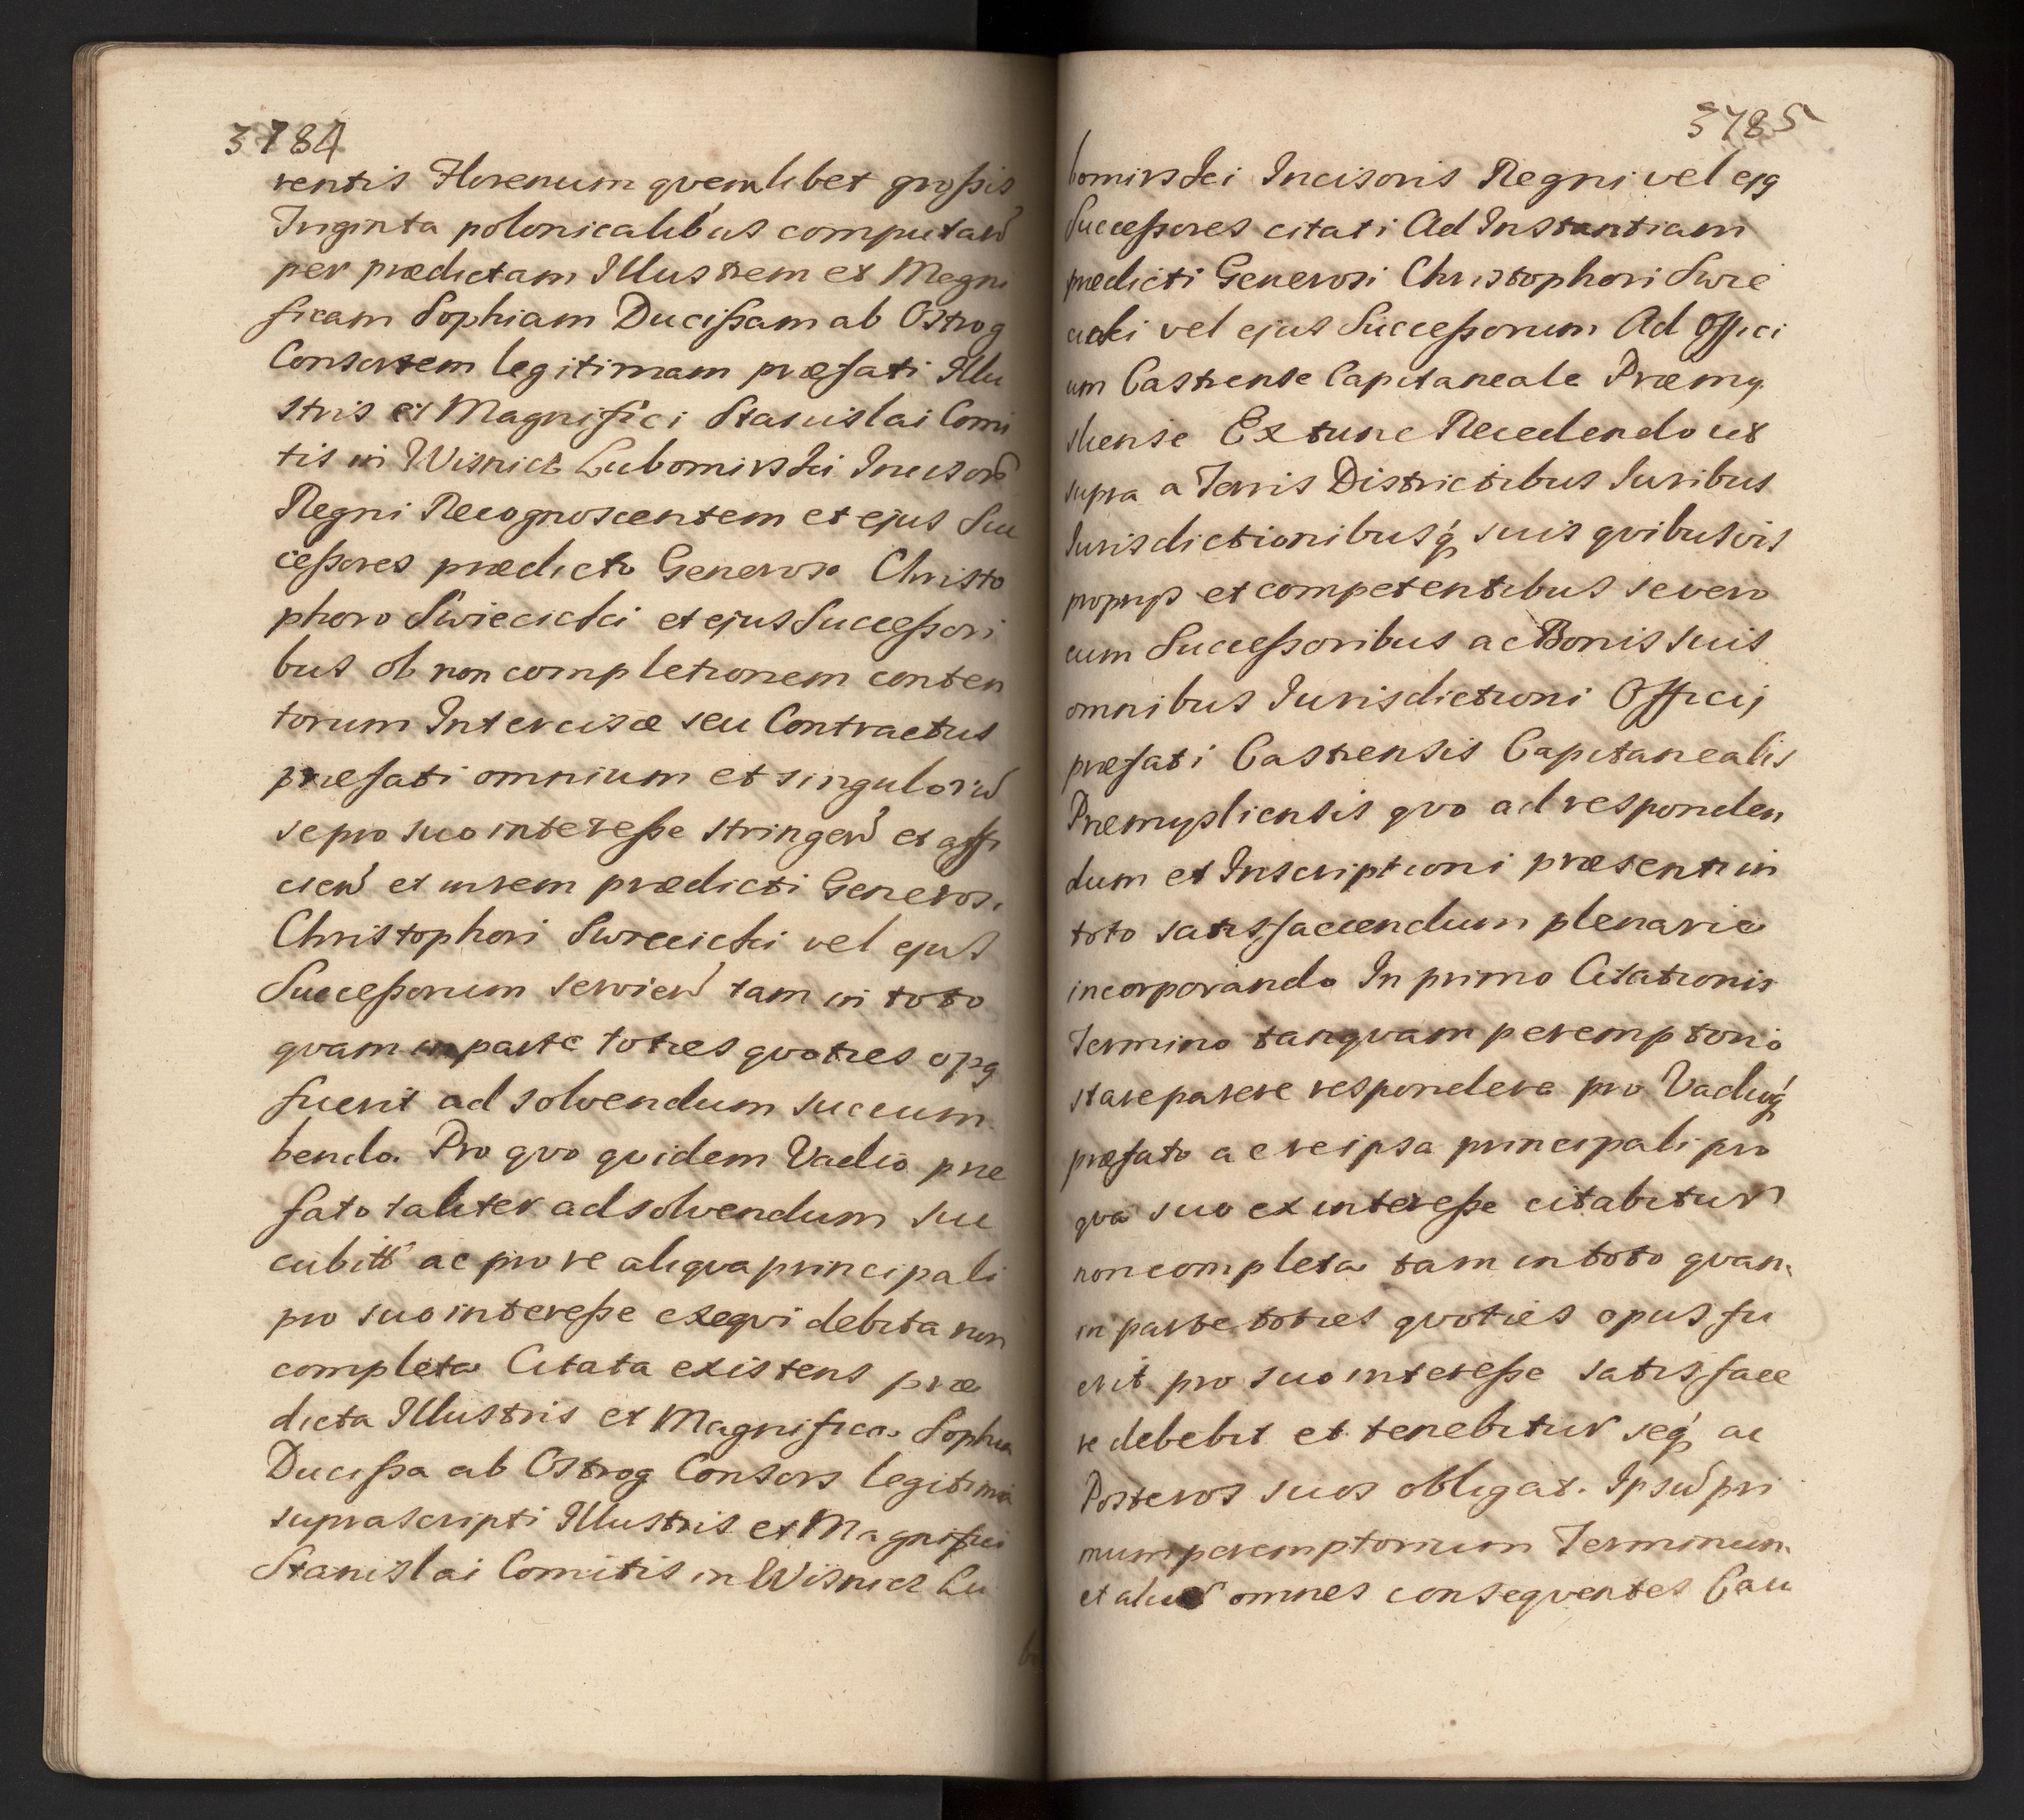 3784
rentis Florenum qvemlibet großis
Triginta polonicalibus computaĩ
per prædictam Illustrem et Magni
ficam Sophiam Ducißam ab Ostrog
Consortem legitimam præfati Illu
stris et Magnifici Stanislai Comi
tis in Wisnicz Lubomirski Incisoris
Regni Recognoscentem et ejus Suc
ceßores prædicto Generoso Christo
phoro Swiecicki et ejus Succeßori
bus ob non completionem conten
torum Intercisæ seu Contractus
præfati omnium et singulorũ
se pro suo intereße stringeñ et affi
cieñ et in rem prædicti Generosi
Christophori Swiecicki vel ejus
Succeßorum servieñ tam in toto
qvam in parte toties qvoties opq
fuerit ad solvendum succum
bendo. Pro qvo qvidem Vadio præ
fato taliter ad solvendum suc
cubitt ac pro re aliqva principali
pro suo intereße exeqvi debita non
completa Citata existens præ
dicta Illustris et Magnifica Sophia
Ducißa ab Ostrog Consors legitima
suprascripti Illustris et Magnifici
Stanislai Comitis in Wisnicz Lu
3785
bomirski Incisoris Regni vel ejq
Succeßores citati Ad Instantiam
prædicti Generosi Christophori Swie
cicki vel ejus Succeßorum Ad Offici
um Castrense Capitaneale Præmy
sliense Extunc Recedendo ut
supra a Terris Districtibus Iuribus
Iurisdictionibusq́ suis qvibusvis
proprijs et competentibus se vero
cum Succeßoribus ac Bonis suis
omnibus Iurisdictioni Officij
præfati Castrensis Capitanealis
Præmysliensis qvo ad responden
dum et Inscriptioni præsenti in
toto satisfaciendum plenarie
incorporando In primo Citationis
Termino tanqvam peremptorio
stare parere respondere pro Vadioq́
præfato ac re ipsa principali pro
qva suo ex intereße citabitur
non completa tam in toto qvam
in parte toties qvoties opus fu
erit pro suo intereße satisface
re debebit et tenebitur seq́ ac
Posteros suos obligat. Ipsũ pri
mum peremptorium Terminum
et omnes conseqventes Cau